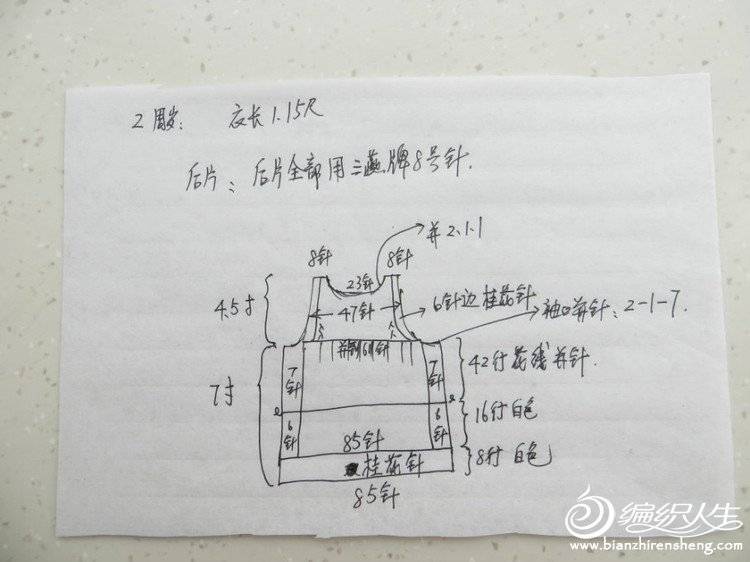 2周岁: 衣长1.15尺
后片: 后片全部用三燕牌8号针.
并2.1.1
8针 8针
23针
4.5寸
47针
6针边桂花针
袖口并针: 2-1-7.
并到61针
7寸
7针 7针
42行花线并针.
6针 6针
16行白色
85针
桂花针
8行白色
85针
编织人生
www.bianzhirensheng.com